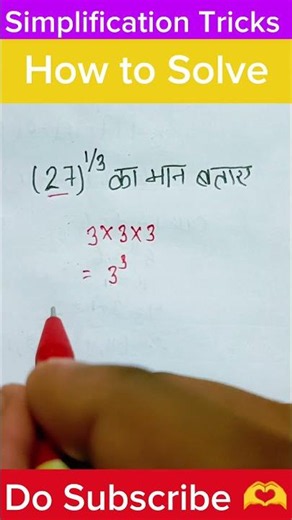 Simplification Tricks
How to Solve
(27)^1/3 का मान बताए
3×3×3
= 3^3
Do Subscribe 🫶